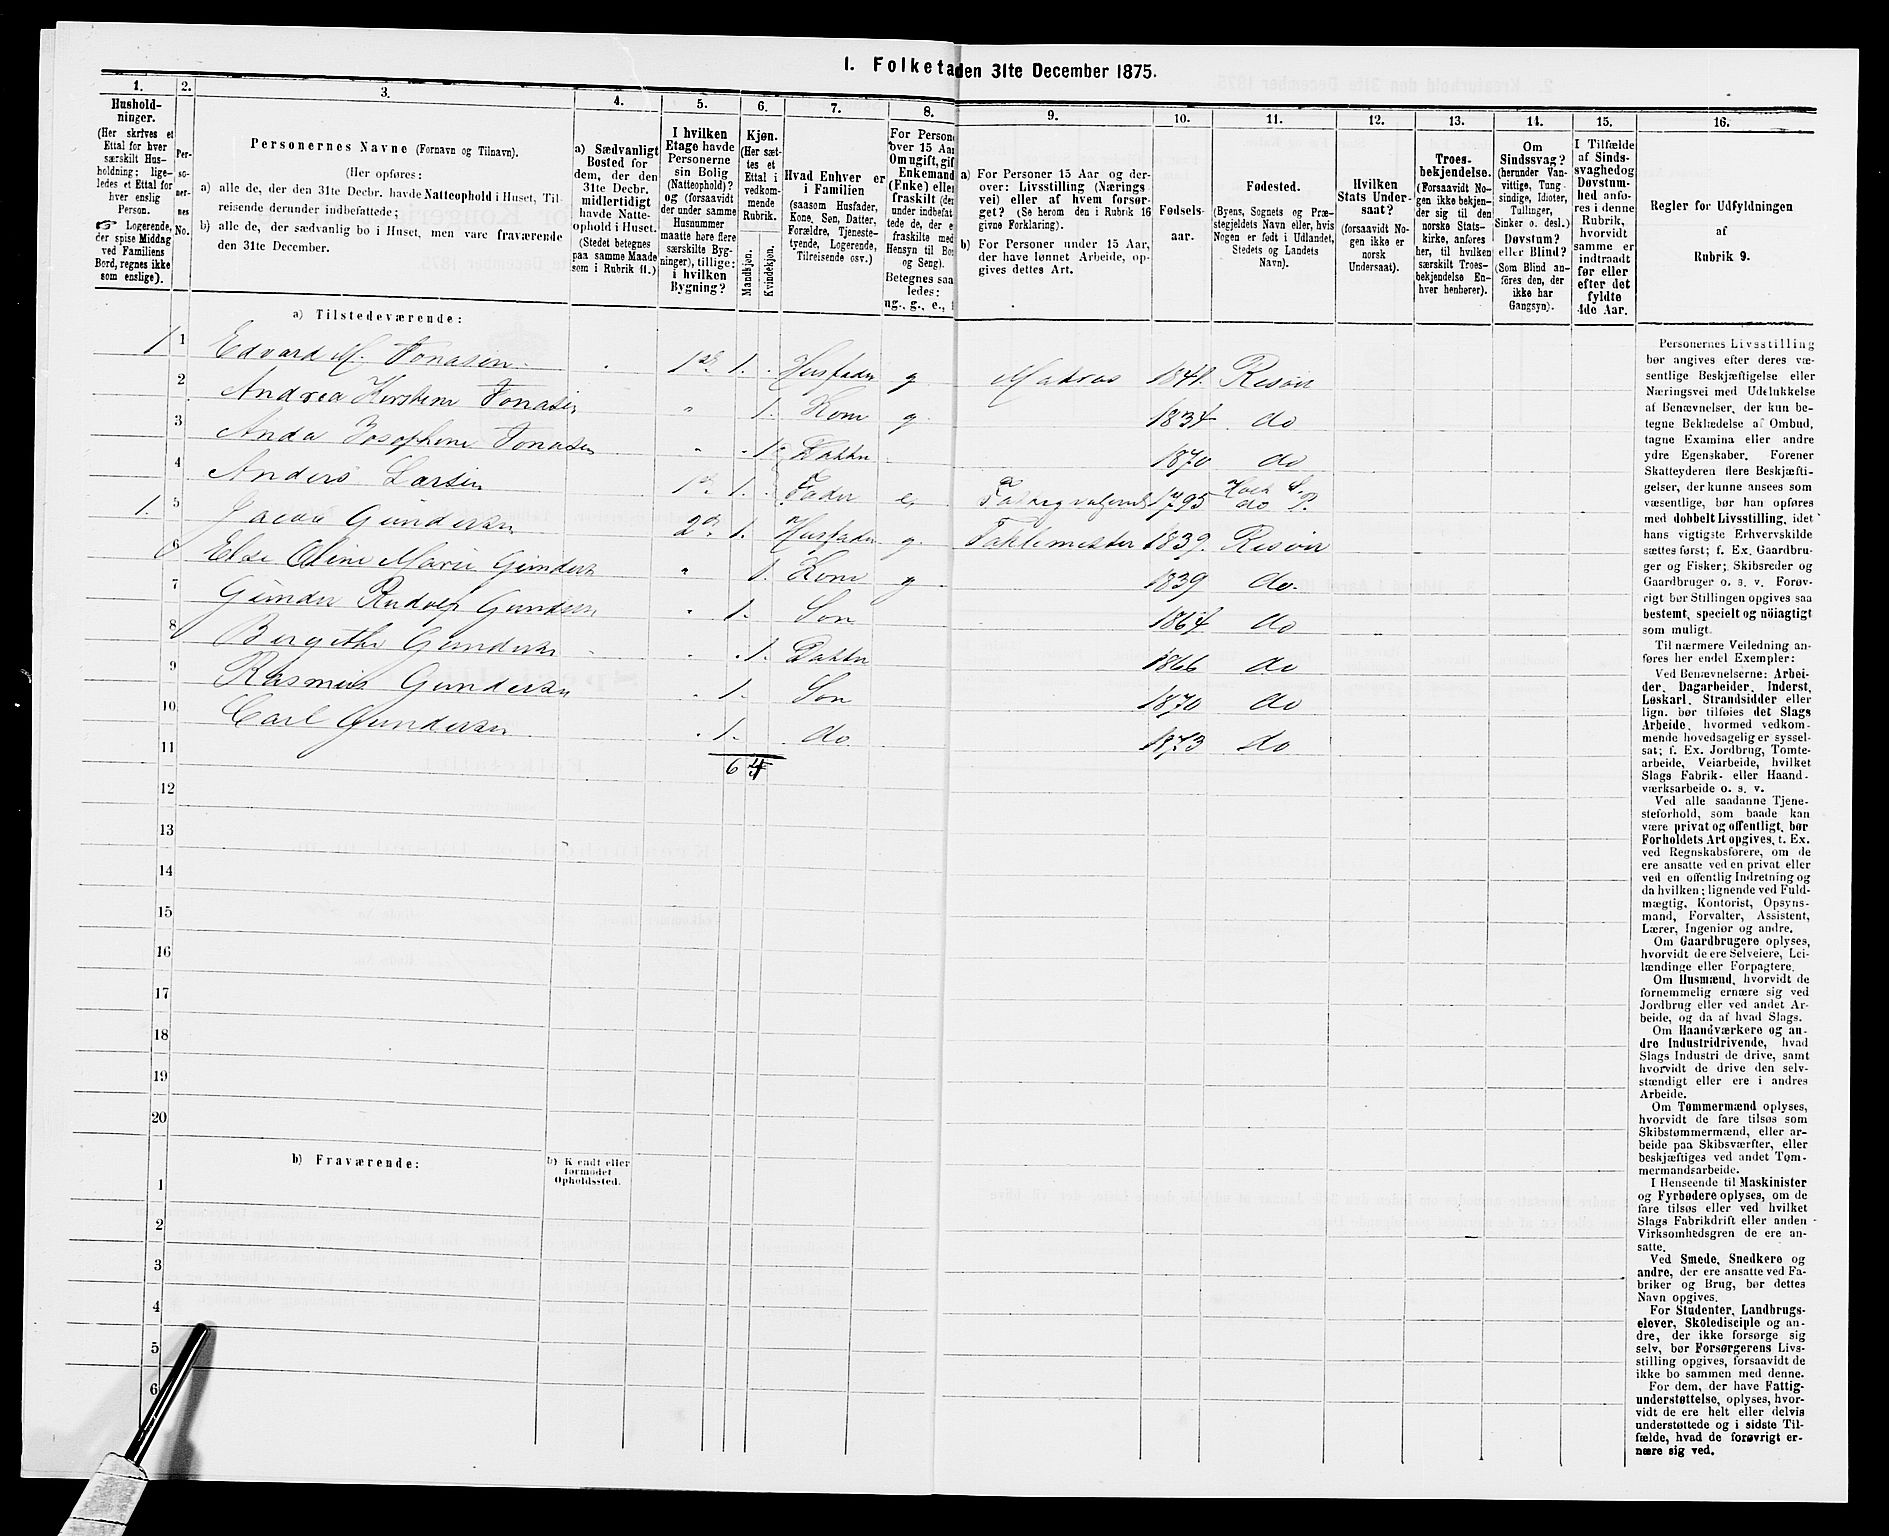 I. Folketa den 31te December 1875.
1. 2. 3. 4. 5. 6. 7. 8. 9. 10. 11. 12. 13. 14. 15. 16.
Hushold-
ninger.
(Her skrives et
Ettal for hver
særskilt Hus-
holdning; lige-
ledes et Ettal for
hver enslig
Person.
Logerende,
der spise Middag
ved Familiens
Bord, regnes ikke
som enslige).
Per-
so-
ner-
nes
No.
Personernes Navne (Fornavn og Tilnavn).
(Her opføres:
a) alle de, der den 31te Decbr. havde Natteophold i Huset, Til-
reisende derunder indbefattede;
b) alle de, der sædvanlig bo i Huset, men vare fraværende
den 31te December.
a) Sædvanligt
Bosted for
dem, der den
31te Decbr.
midlertidigt
havde Natte-
ophold i Huset.
(Stedet betegnes
paa samme Maade
som i Rubrik 11.)
I hvilken
Etage havde
Personerne
sin Bolig
(Natteophold)?
og (forsaavidt
der under samme
Husnummer
maatte høre flere
særskilte Byg-
ninger), tillige:
i hvilken
Bygning?
Kjøn.
(Her sæt-
tes et
Ettal i
vedkom-
mende
Rubrik.
Mandkjøn.
Kvindekjøn.
Hvad Enhver er
i Familien
(saasom Husfader,
Kone, Søn, Datter,
Forældre, Tjeneste-
tyende, Logerende,
Tilreisende osv.)
For Persone
over 15 Aar
Om ugift, gif
Enkemand
(Enke) elle
fraskilt (de
under indbefat
tede de, der e
fraskilte med
Hensyn til Bo
og Seng).
Betegnes saa
ledes:
ug., g., e.,
a) For Personer 15 Aar og der-
over: Livsstilling (Nærings
vei) eller af hvem forsør-
get? (Se herom den i Rubrik 16
givne Forklaring).
b) For Personer under 15 Aar,
der have lønnet Arbeide, op-
gives dettes Art.
Fødsels-
aar.
Fødested.
(Byens, Sognets og Præ-
stegjeldets Navn eller, hvis
Nogen er født i Udlandet,
Stedets og Landets
Navn).
Hvilken
Stats Under-
saat?
(forsaavidt No-
gen ikke er
norsk
Undersaat).
Troes-
bekjendelse.
(Forsaavidt No-
gen ikke bekjen-
der sig til den
norske Stats-
kirke, anføres
her, til hvilken
særskilt Troes-
bekjendelse En-
hver henhører).
Om
Sindssvag?
(herunder Van-
vittige, Tung-
sindige, Idioter,
Tullinger,
Sinker o. desl.)
Døvstum?
eller Blind?
(Som Blind an-
føres den, der
ikke har
Gangsyn).
I Tilfælde
af Sinds-
svaghed og
Døvstum-
hed anfø-
res i denne
Rubrik,
hvorvidt
samme er
indtraadt
før eller
efter det
fyldte
4de Aar.
Regler for Udfyldningen
af
Rubrik 9.
a) Tilstedeværende:
1 1 Edvard M. Tonasen 1ste 1. Husfader g Matros 1841. Risør
2 Andrea Kirstine Tonasen " 1. Kone g. 1834 do
3 Anda Josephine Tonasen " 1. Datter 1870 do
4 Anders Larsen 1ste 1. Fader e 1795 Holt
1. 5 Jacob Gundersen 2den 1. Husfader g. Taklemester 1839. Risør
6 Else Oline Marie Gundersen " 1. Kone g 1839 do.
7 Gunder Rudolf Gundersen " 1. Søn 1864 do
8 Bergithe Gundersen " 1. Datter 1866 do
9 Rasmus Gundersen " 1. Søn 1870 do
10 Carl Gundersen " 1. do. 1873 do
11 6 4
12
13
14
15
16
17
18
19
20
b) Fraværende:
b) Kjendt eller
formodet
Opholdssted.
1
2
3
4
5
6
Personernes Livsstilling
bør angives efter deres væ-
sentlige Beskjæftigelse eller
Næringsvei med Udelukkelse
af Benævnelser, der kun be-
tegne Beklædelse af Ombud,
tagne Examina eller andre
ydre Egenskaber. Forener
Skatteyderen flere Beskjæfti-
gelser, der kunne ansees som
væsentlige, bør han opføres
med dobbelt Livsstilling, idet
hans vigtigste Erhvervskilde
sættes først; f. Ex. Gaardbru-
ger og Fisker; Skibsreder og
Gaardbruger o. s. v. Forøv-
rigt bør Stillingen opgives saa
bestemt, specielt og nöiagtigt
som muligt.
Til nærmere Veiledning an-
føres her endel Exempler:
Ved Benævnelserne: Arbei-
der, Dagarbeider, Inderst,
Løskarl, Strandsidder eller
lign. bør tilføies det Slags
Arbeide, hvormed vedkom-
mende hovedsagelig er syssel-
sat; f. Ex. Jordbrug, Tomte-
arbeide, Veiarbeide, hvilket
Slags Fabrik- eller Haand-
værksarbeide o. s. v.
Ved alle saadanne Tjene-
steforhold, som baade kan
være privat og offentligt, bør
Forholdets Art opgives, t. Ex.
ved Regnskabsførere, om de
ere ansatte ved en privat eller
ved en offentlig Indretning og
da hvilken; lignende ved Fuld-
mægtig, Kontorist, Opsyns-
mand, Forvalter, Assistent,
Lærer, Ingeniør og andre.
Om Gaardbrugere oplyses,
hvorvidt de ere Selveiere, Lei-
lændinge eller Forpagtere.
Om Husmænd, hvorvidt de
fornemmelig ernære sig ved
Jordbrug eller ved andet Ar-
beide, og da af hvad Slags.
Om Haandværkere og an-
dre Industridrivende, hvad
Slags Industri de drive, samt
hvorvidt de drive den selv-
stændigt eller ere i andres
Arbeide.
Om Tømmermænd oplyses,
hvorvidt de fare tilsøs som
Skibstømmermænd, eller ar-
beide paa Skibsværfter, eller
beskjæftiges ved andet Tøm-
mermandsarbeide.
I Henseende til Maskinister
og Fyrbødere oplyses, om de
fare tilsøs eller ved hvilket
Slags Fabrikdrift eller anden
Virksomhedsgren de ere an-
satte.
Ved Smede, Snedkere og
andre, der ere ansatte ved Fa-
briker og Brug, bør dettes
Navn opgives.
For Studenter, Landbrugs-
elever, Skoledisciple og an-
dre, der ikke forsørge sig
selv, bør Forsørgerens Livs-
stilling opgives, forsaavidt de
ikke bo sammen med denne.
For dem, der have Fattig-
understøttelse, oplyses, hvor-
vidt de ere helt eller delvis
understøttede og i sidste Til-
fælde, hvad de forøvrigt er-
nære sig ved.